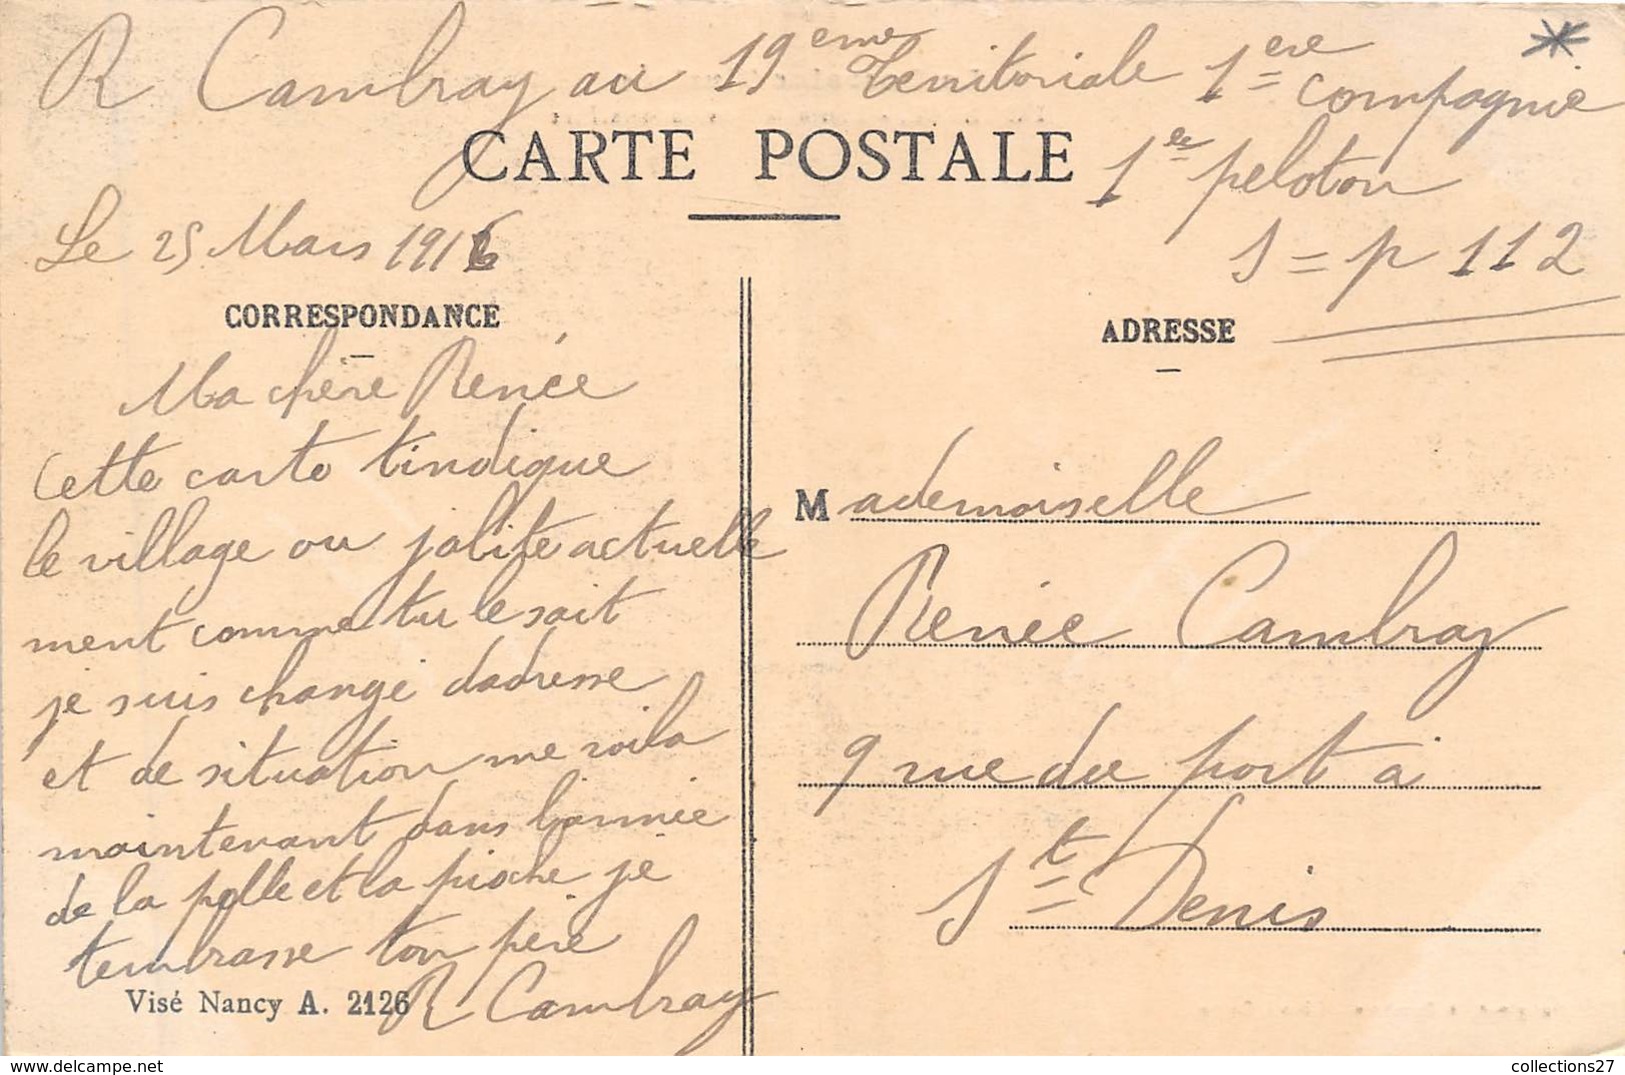 R Cambray au 19eme Territoriale 1ere compagnie
CARTE POSTALE
1er peloton
Le 25 Mars 1916
S = p 112
CORRESPONDANCE
ADRESSE
Ma chère Renée
Cette carte t'indique
le village ou j'abite actuelle
ment comme tu le sait
je suis changé dadresse
et de situation me voila
maintenant dans l'armée
de la pelle et la pioche je
tembrasse ton père
R Cambray
Visé Nancy A. 2126
Mademoiselle
Renée Cambray
9 rue du port à
St Denis
collections27